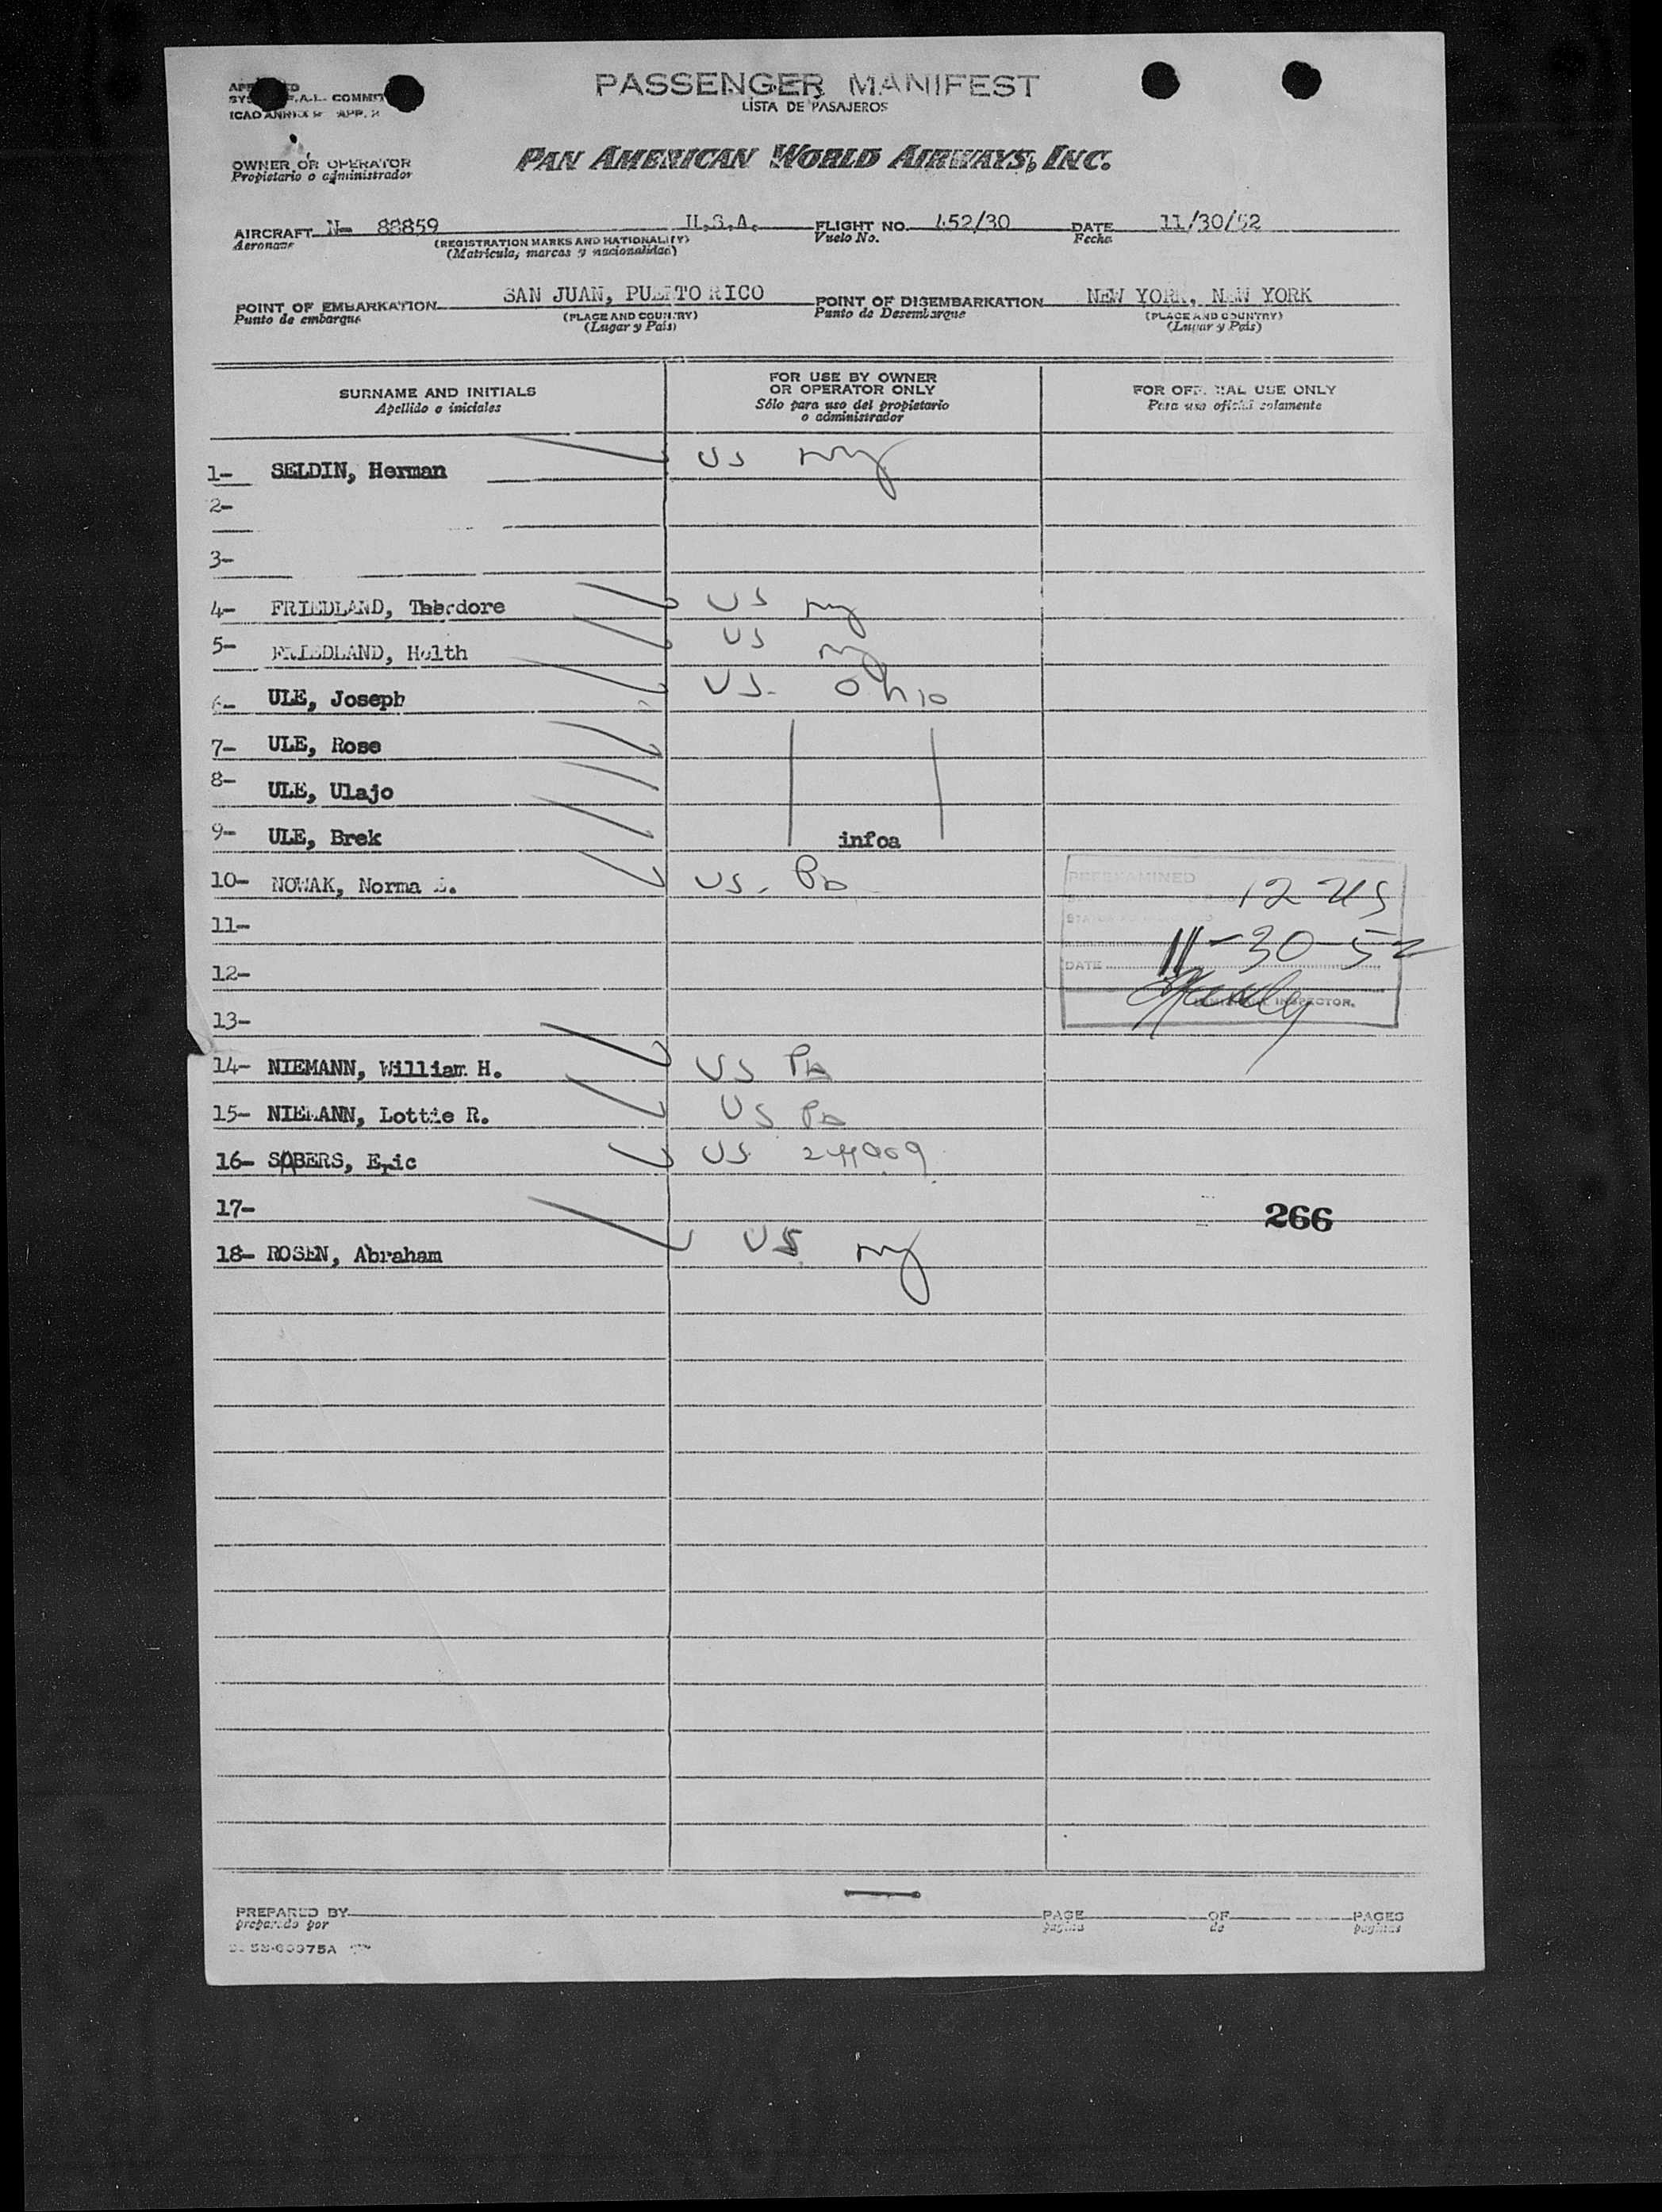 PASSENGER MANIFEST
LISTA DE PASAJEROS
F.A.L. COMMIT
ICAO ANNEX 9 APP. 2
OWNER OR OPERATOR
Propietario o administrador
PAN AMERICAN WORLD AIRWAYS, INC.
AIRCRAFT N- 88859 U.S.A. FLIGHT NO. 452/30 DATE 11/30/52
Aeronave (REGISTRATION MARKS AND NATIONALITY) Vuelo No. Fecha
(Matricula, marcas y nacionalidad)
POINT OF EMBARKATION SAN JUAN, PUERTO RICO POINT OF DISEMBARKATION NEW YORK, NEW YORK
Punto de embarque (PLACE AND COUNTRY) Punto de Desembarque (PLACE AND COUNTRY)
(Lugar y Pais) (Lugar y Pais)
SURNAME AND INITIALS FOR USE BY OWNER OR OPERATOR ONLY FOR OFFICIAL USE ONLY
Apellido e iniciales Sólo para uso del propietario o administrador Para uso oficial solamente
1- SELDIN, Herman US NY
2-
3-
4- FRIEDLAND, Theodore US NY
5- FRIEDLAND, US NY
6- ULE, Joseph US- Ohio
7- ULE, Rose
8- ULE, Ulajo
9- ULE, Brek infoa
10- NOWAK, Norma US. Pa
PREEXAMINED 12 US
11-
DATE 11-30-52
12-
INSPECTOR.
13-
14- NIEMANN, William H. US Pa
15- NIEMANN, Lottie R. US Pa
16- SOBERS, Eric US
17-
266
18- ROSEN, Abraham US NY
PREPARED BY PAGE OF PAGES
preparado por pagina de paginas